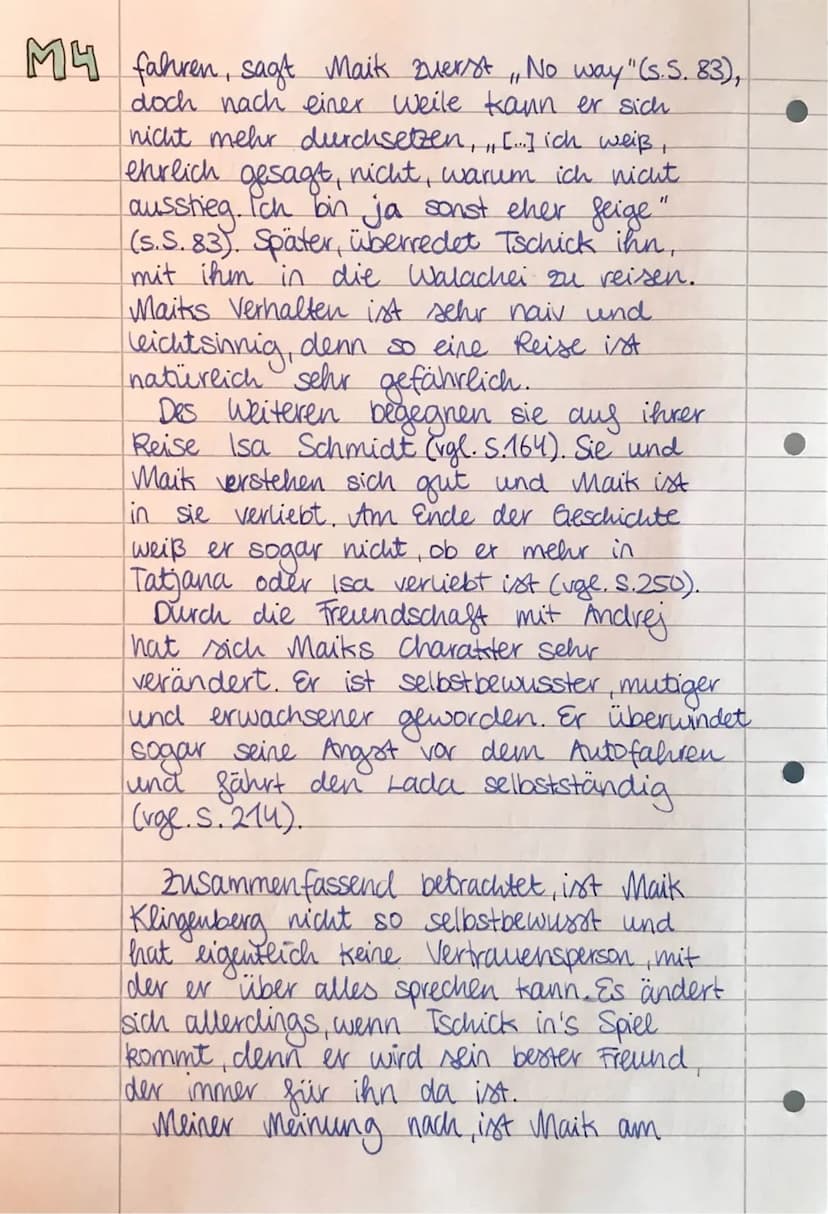 M4
fahren, sagt Maik zuerst „No way" (s.S. 83),
doch nach einer Weile kann er sich
nicht mehr durchsetzen, „[...] ich weiß,
ehrlich gesagt, nicht, warum ich nicht
ausstieg. Ich bin ja sonst eher feige"
(s.S. 83). Später, überredet Tschick ihn,
mit ihm in die Walachei zu reisen.
Maiks Verhalten ist sehr naiv und
leichtsinnig, denn so eine Reise ist
natürlich sehr gefährlich.
Des Weiteren begegnen sie auf ihrer
Reise Isa Schmidt (vgl. S.164). Sie und
Maik verstehen sich gut und Maik ist
in sie verliebt. Am Ende der Geschichte
weiß er sogar nicht, ob er mehr in
Tatjana oder Isa verliebt ist (vgl. S.250).
Durch die Freundschaft mit Andrej
hat sich Maiks Charakter sehr
verändert. Er ist selbstbewusster, mutiger
und erwachsener geworden. Er überwindet
sogar seine Angst vor dem Autofahren
und fährt den Lada selbstständig
(vgl. S. 214).
Zusammenfassend betrachtet, ist Maik
Klingenberg nicht so selbstbewusst und
hat eigentlich keine Vertrauensperson, mit
der er über alles sprechen kann. Es ändert
sich allerdings, wenn Tschick in's Spiel
kommt, denn er wird sein bester Freund,
der immer für ihn da ist.
Meiner Meinung nach, ist Maik am